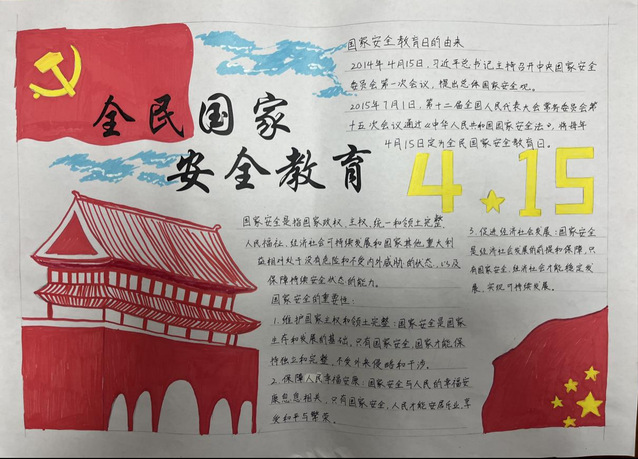 全民国家
安全教育
国家安全教育日的由来
2014年4月15日，习近平总书记主持召开中央国家安全
委员会第一次会议，提出总体国家安全观。
2015年7月1日，第十二届全国人民代表大会常务委员会第
十五次会议通过《中华人民共和国国家安全法》，将每年
4月15日定为全民国家安全教育日。
4★15
国家安全是指国家政权、主权、统一和领土完整、
人民福祉、经济社会可持续发展和国家其他重大利
益相对处于没有危险和不受内外威胁的状态，以及
保障持续安全状态的能力。
国家安全的重要性：
1.维护国家主权和领土完整：国家安全是国家
生存和发展的基础。只有国家安全，国家才能保
持独立和完整，不受外来侵略和干涉。
2.保障人民幸福安康：国家安全与人民的幸福安
康息息相关，只有国家安全，人民才能安居乐业，享
受和平与繁荣。
3.促进经济社会发展：国家安全
是经济社会发展的前提和保障，只
有国家安全，经济社会才能稳定发
展，实现可持续发展。